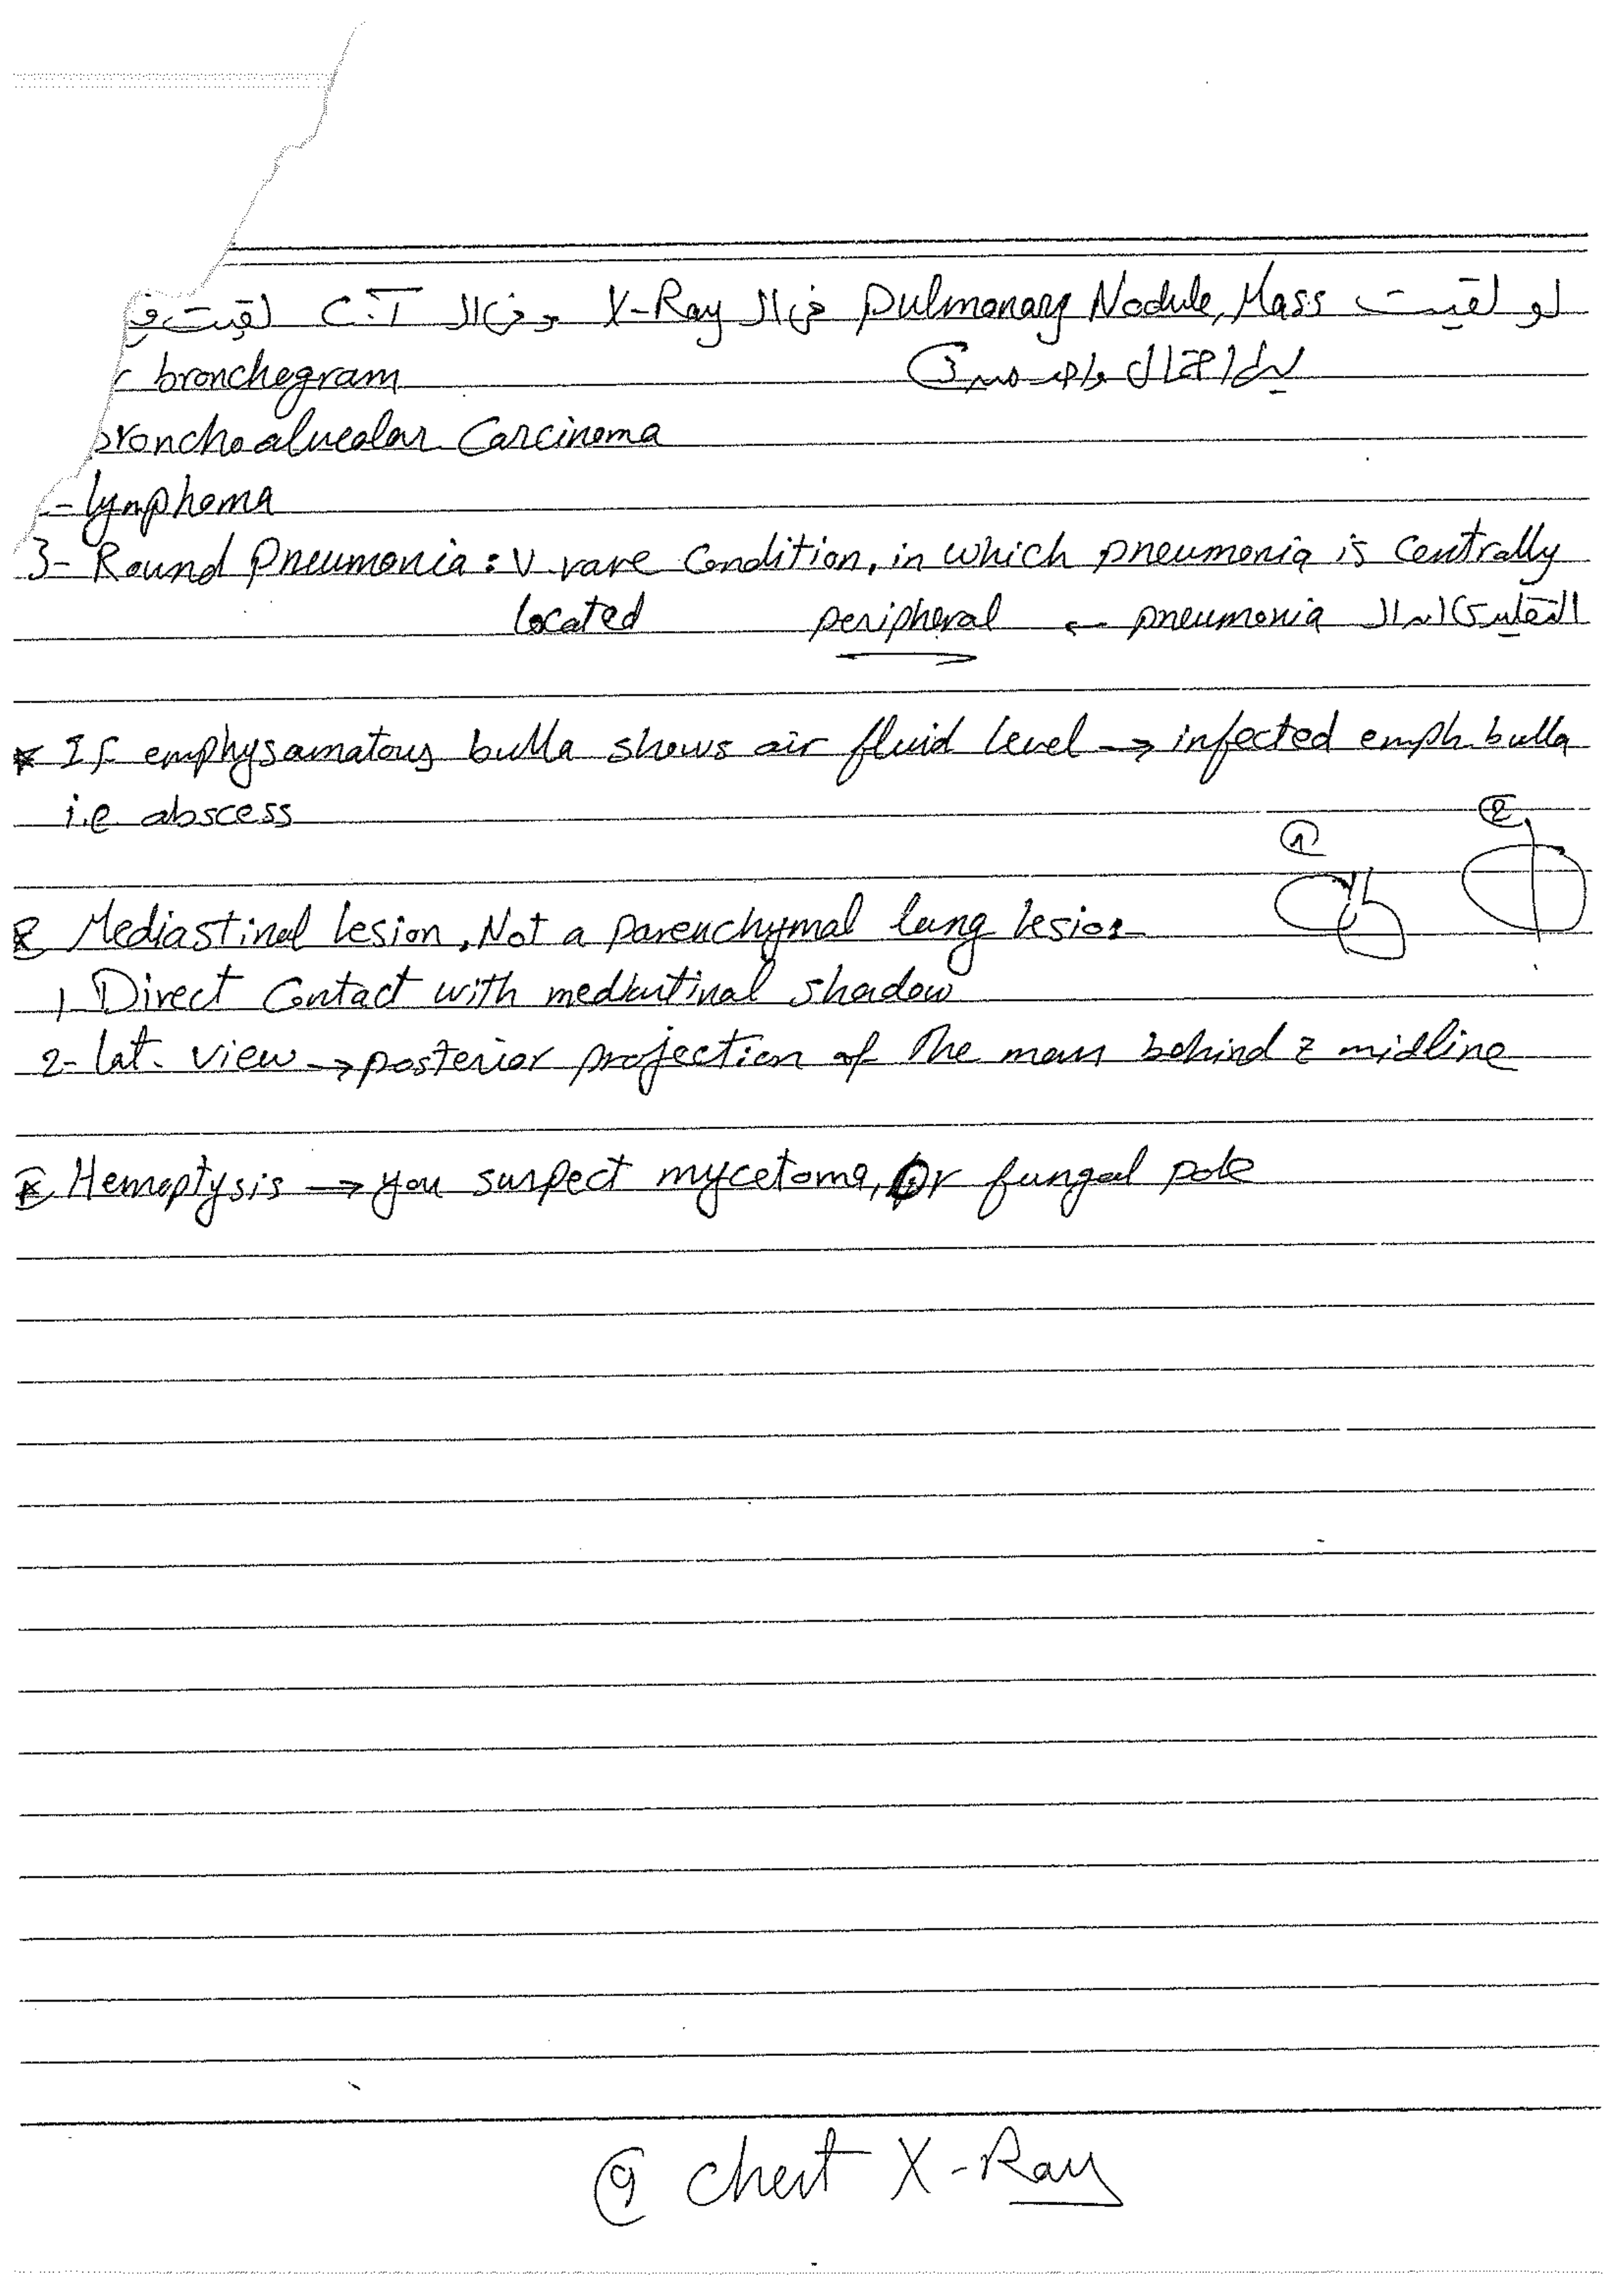 لو لقيت Pulmonary Nodule, Mass في ال X-Ray وفي ال C.T لقيت في
bronchegram يبقى احتمال واحد من 3
bronchoalveolar Carcinoma
- lymphoma
3- Round Pneumonia: V. rare Condition, in which pneumonia is Centrally
located ال pneumonia ← peripheral
* If emphysamatous bulla shows air fluid level → infected emph. bulla
i.e abscess
① ②
Mediastinal lesion, Not a parenchymal lung lesion
1, Direct Contact with mediastinal shadow
2- lat. view → posterior projection of The mass behind z midline
* Hemoptysis → you suspect mycetoma, Or fungal pole
9 Chest X-Ray